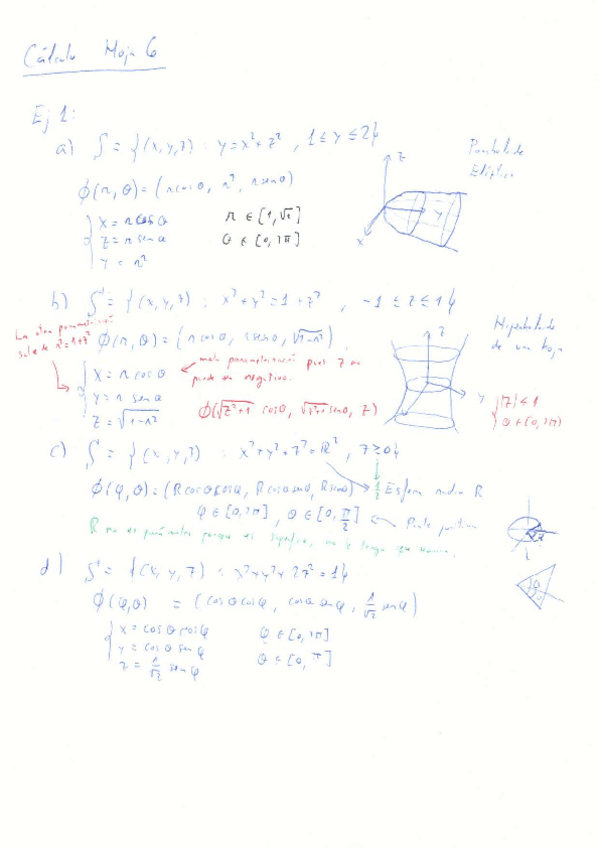 Cálculo Hoja 6
Ej 1:
a) S = {(x,y,z) : y = x² + z² , 1 ≤ y ≤ 2}
Paraboloide Elíptico
z
y
x
ϕ(r,θ) = (r cosθ, r², r senθ)
x = r cosθ r ∈ [1,√2]
z = r senθ θ ∈ [0,2π]
y = r²
b) S = {(x,y,z) : x² + y² = 1 + z² , -1 ≤ z ≤ 1}
Hiperboloide de una hoja
La otra parametrización sale de r² = 1 + z²
ϕ(r,θ) = (r cosθ, r senθ, √1-r²)
x = r cosθ ← mala parametrización pues z no
y = r senθ puede ser negativo.
z = √1-r²
ϕ(√z²+1 cosθ, √z²+1 senθ, z)
z
y
|z| ≤ 1
θ ∈ [0,2π]
c) S = {(x,y,z) : x² + y² + z² = R² , z ≥ 0}
ϕ(φ,θ) = (R cosθ cosφ, R cosθ senφ, R senθ) Esfera radio R
φ ∈ [0,2π] , θ ∈ [0, π/2] ← Parte positiva
R no es parámetro porque es superficie, no
d) S = {(x,y,z) : x² + y² + 2z² = 1}
ϕ(φ,θ) = (cosθ cosφ, cosθ senφ, 1/√2 senφ)
x = cosθ cosφ φ ∈ [0,2π]
y = cosθ senφ θ ∈ [0,π]
z = 1/√2 senφ